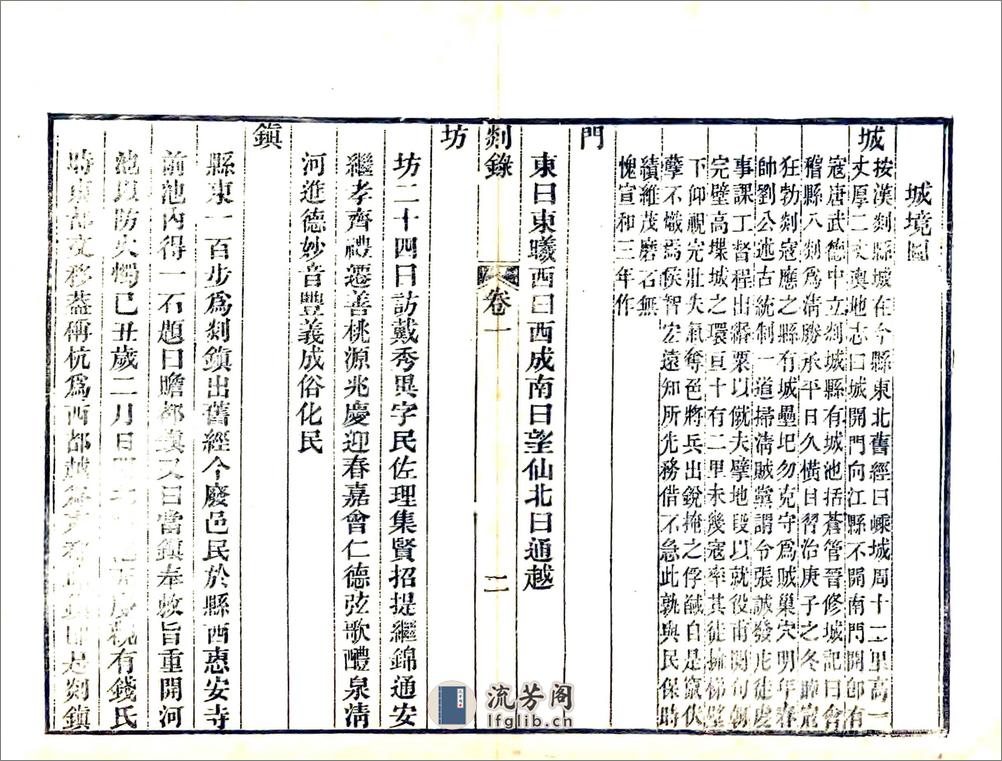 城境圖
城
按漢剡縣城在今縣東北舊經曰嵊城周十二里高一
丈厚二丈輿地志曰城開門向江縣不開南門開卽有
寇唐武德中立剡城縣有城池括蒼管晉修城記曰會
稽縣八剡爲清勝承平日久橫目習治庚子之冬睦寇
狂勃剡寇應之縣有城壘圮勿克守爲賊巢穴明年春
帥劉公述古統制一道掃清賊黨謂令張誠發凡徒度
事課工督程出廩粟以僦夫擘地段以就役甫閱旬創
完壁高堞城之環亘十有二里未幾寇率其徒擁梯壁
下仰視完壯失氣奪邑將兵出銳掩之俘馘自是竄伏
孽不熾焉侯智宏遠知所先務借不急此孰與民保時
績維茂磨石無
愧宣和三年作
門
東曰東曦西曰西成南曰望仙北曰通越
剡錄 卷一 二
坊
坊二十四曰訪戴秀異字民佐理集賢招提繼錦通安
繼孝齊禮遷善桃源兆慶迎春嘉會仁德弦歌醴泉清
河進德妙音豐義成俗化民
鎮
縣東一百步爲剡鎮出舊經今廢邑民於縣西惠安寺
前池內得一石題曰瞻都鎮又曰當鎮奉敕旨重開河
池以防火燭己丑歲二月日 有錢氏
時東都文移蓋傳杭爲西都越爲東 是剡鎮
流芳阁
lfglib.ch